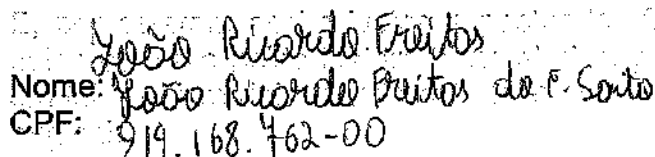 João Ricardo Freitas
Nome: João Ricardo Freitas do E. Santo
CPF: 919.168.762-00